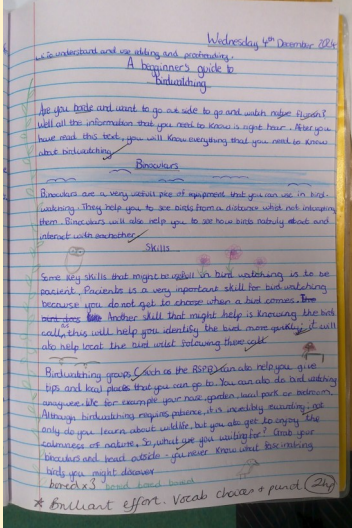 Wednesday 4th December 2024
understand and use editing and proofreading.
A begginner's guide to
birdwatching
Are you borde and want to go out side to go and watch native
Well all the information that you need to know is right hear. After you
have read this text, you will know everything that you need to know
about birdwatching
Binoculars
Binoculars are a very usefull of equipment that you can use in bird-
watching. They help you to see birds from a distance whist not
them. Binoculars will also help you to see how birds about and
interact with eachother.
Skills
Some key skills that might be usfull in bird watching is to be
pacient. Pacients is a very important skill for bird watching
because you do not get to choose when a bird comes.
Another skill that might help is knowing the bird
call, this will help you identify the bird more quickly; it will
also help locat the bird wilst following there call
Birdwatching groups, (such as the RSPB) can also help you, give
tips and local places that you can go to. You can also do bird watching
for example your nark, garden, local park or
Although birdwatching requires patience, it is incredibly rewarding, not
only do you learn about wildlife, but you also get to enjoy the
calmness of nature, So, what are you waiting for? Grab your
binoculars and head outside - you never know what fascinating
birds you might discover
bored x3 bored bored bored
* Brilliant effort. Vocab choices + punc (2H)